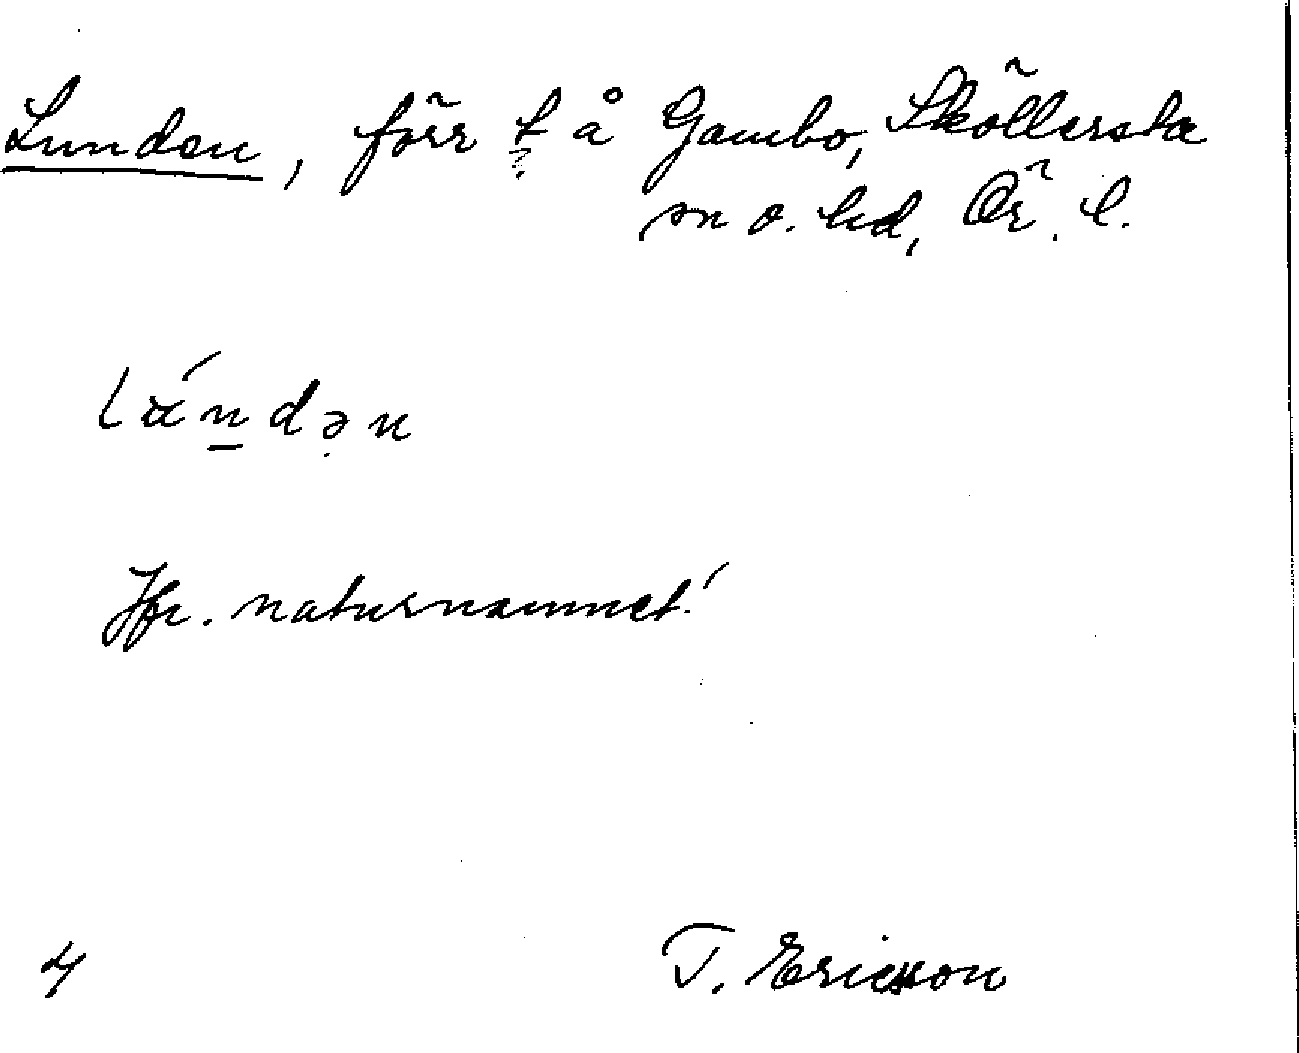 Lunden, förr t å Gambo, Sköllersta
sn o. hd, Ör. l.
Jfr. naturnamnet!
4
T. Ericsson